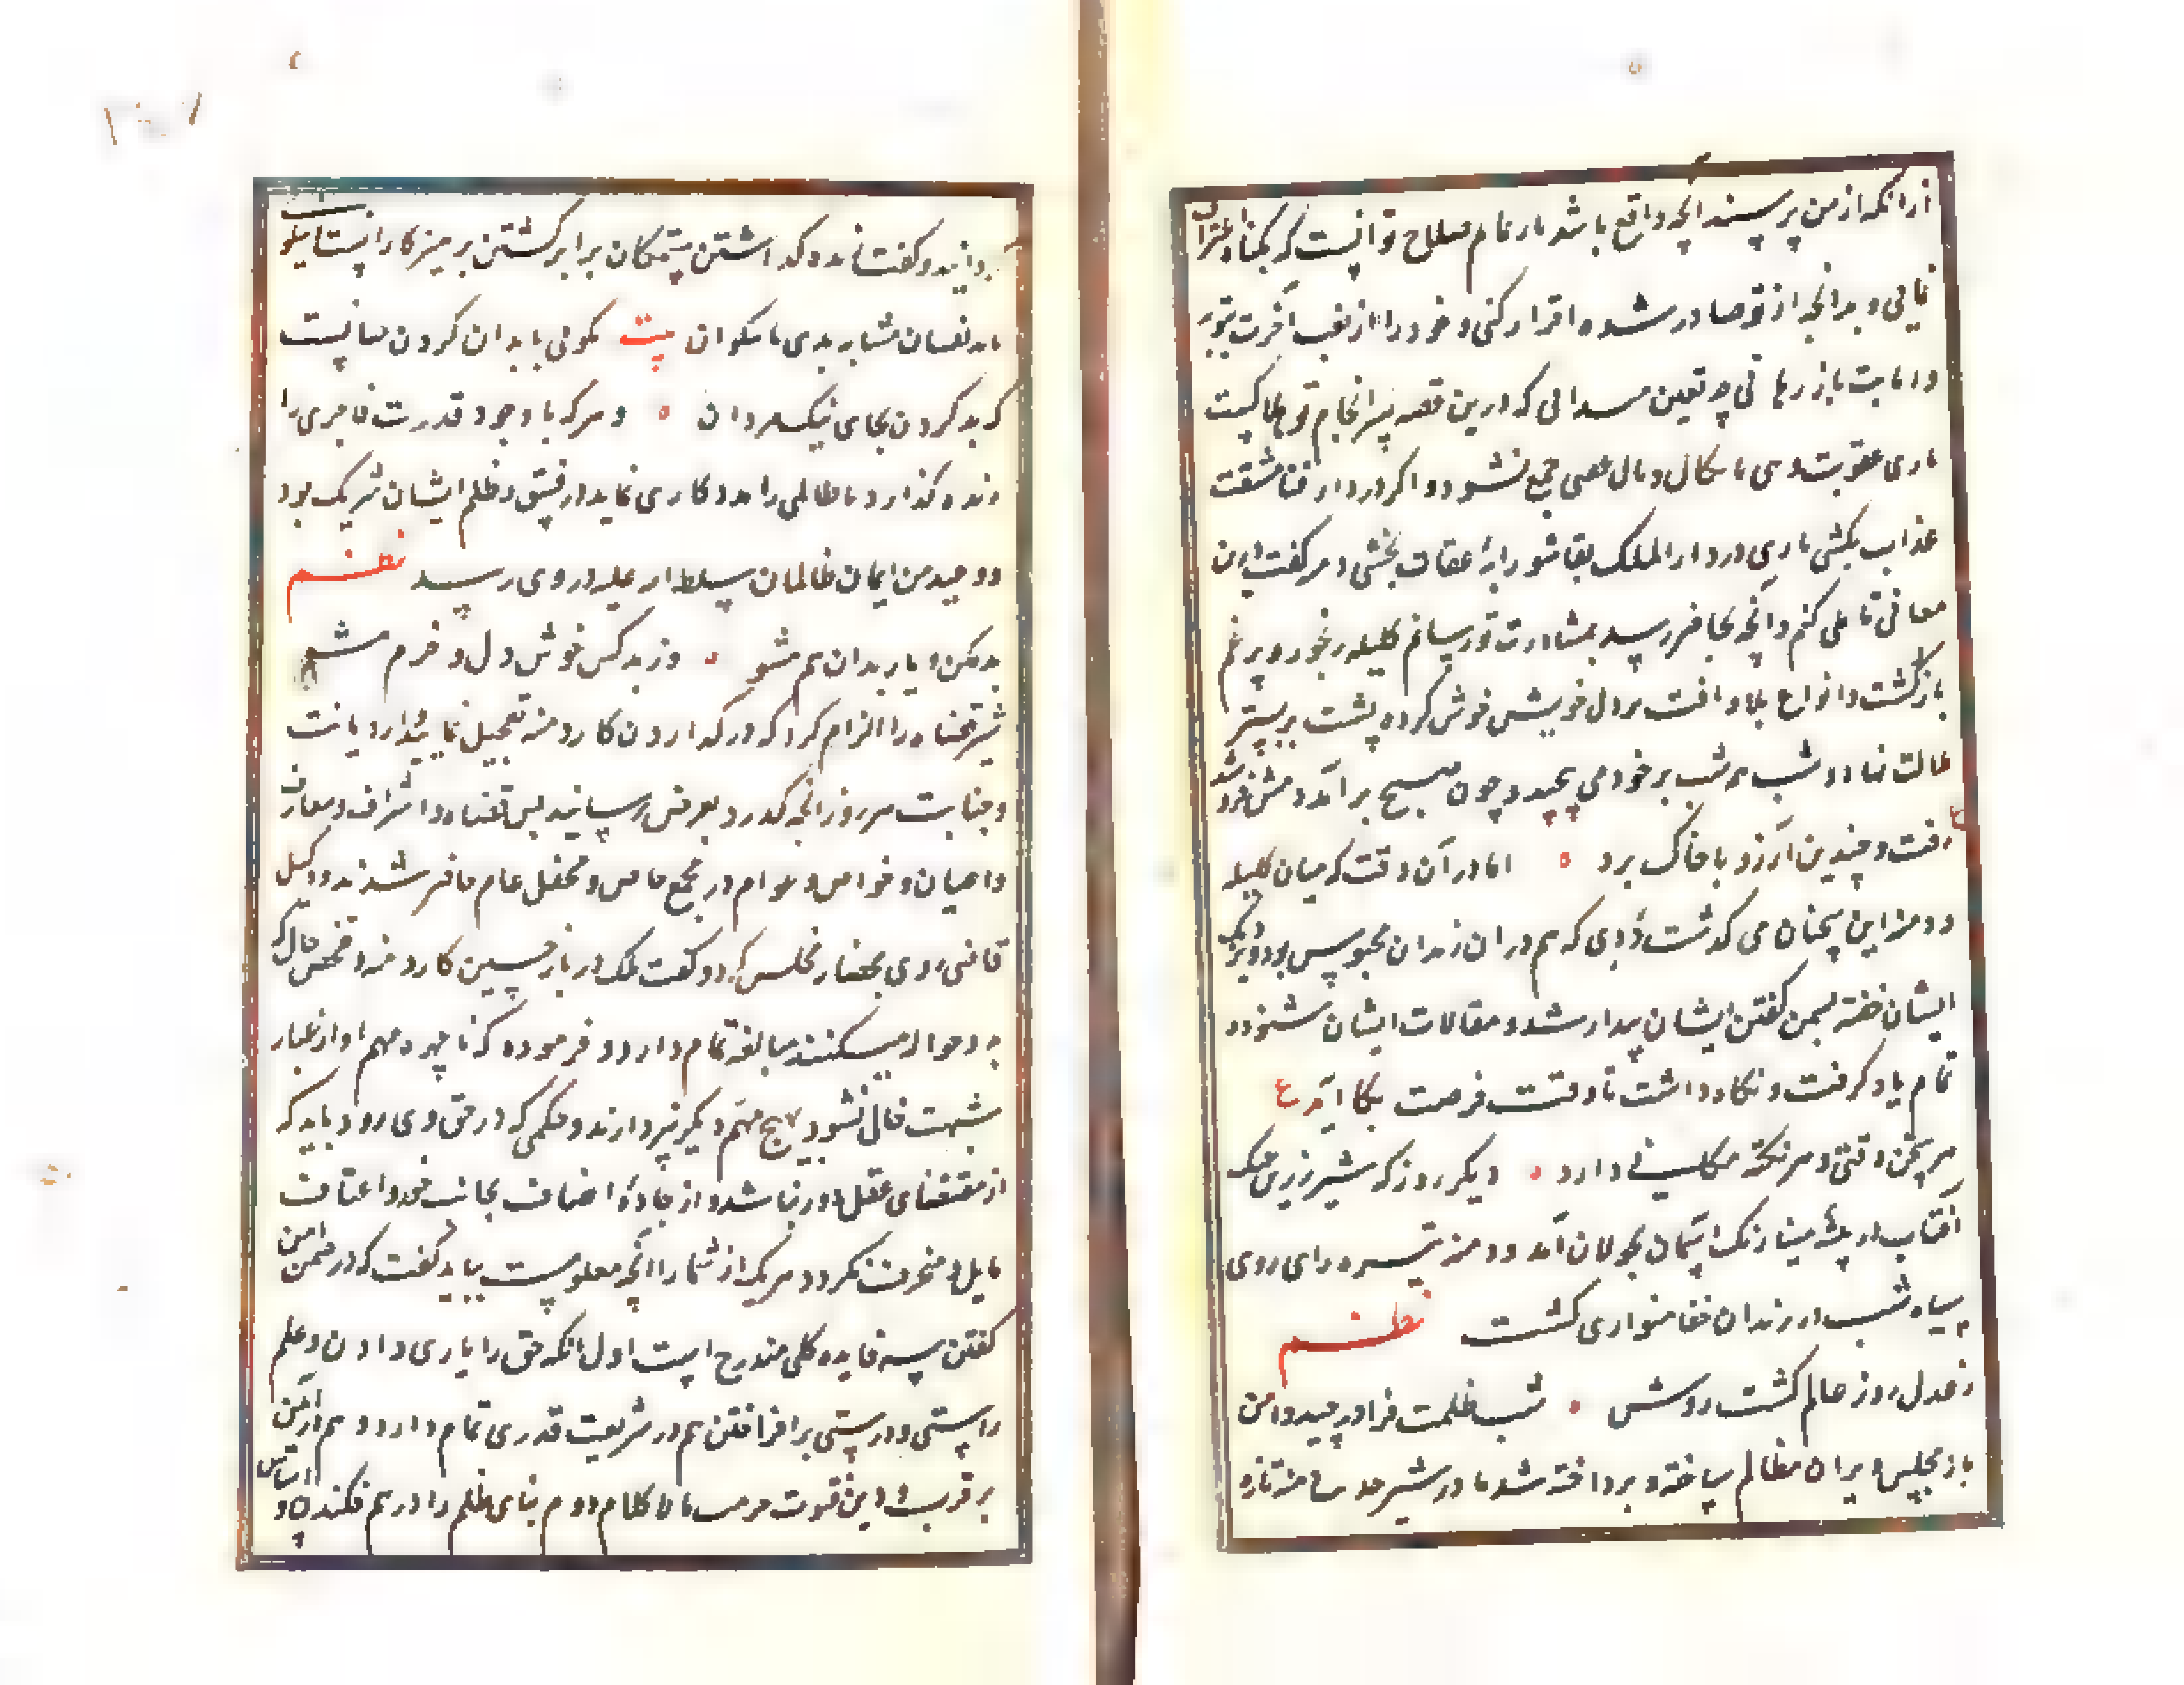 ازانکه از من پرسند آنچه واقع باشد باز نمایم صلاح تو آنست که بگناه اعتراف
نمائی و بدانچه از تو صادر شده اقرار کنی و خود را از تعب آخرت بتوبه
و انابت باز رهانی چه تعین میدانی که درین قصه سرانجام تو هلاکیست
باری عقوبت دنیی با نکال و بال عقبی جمع نشود و اگر در دار فنا مشقت
عذاب بکشی باری در دار الملک بقا شور به عقاب نچشی دمنه گفت درین
معانی تاملی کنم و آنچه بخاطر رسد بمشاورت تو رسانم کلیله رنجور و پر غم
بازگشت و انواع بلا و آفت بر دل خویش خوش کرده پشت بر بستر
نهاد و شب همه شب بر خود می پیچید و چون صبح بر آمد دمش فرو شد ع
رفت و چندین آرزو با خاک برد ه اما در آن وقت که میان کلیله
و دمنه این سخنان می گذشت ددی که هم در ان زندان محبوس بود و نزدیک
ایشان خفته بسخن گفتن ایشان بیدار شد و مقالات ایشان شنود و
تمام یاد گرفت و نگاه داشت تا وقت فرصت بکار آید ع
هر سخن وقتی و هر نکته مکانی دارد ه دیگر روز که شیر زرین چنگ
آفتاب در بیشه مینا رنگ آسمان بجولان آمد و دمنه تیره رای روی
سیاه شب در زندان خفا متواری گشت نظم
ز عدل روز عالم گشت روشن ه شب ظلمت فرا در چید دامن
باز مجلس دیوان مظالم ساخته و پرداخته شد مادر شیر حدیث دمنه تازه
گردانید و گفت زنده گذاشتن ستمگاران برابر کشتن پرهیزگارانست و نیکو
با بدنفسان مشابه بدی با نیکوان بیت نکوئی با بدان کردن چنانست
که بد کردن بجای نیک مردان ه و هر که با وجود قدرت فاجری را
زنده گذارد یا ظالمی را مددکاری نماید در فسق و ظلم ایشان شریک بود
و وعید من اعان ظالما سلط الله علیه در وی رسد نظم
بد مکن و یار بدان هم مشو ه وز بد کس خوش دل و خرم مشو
شیر قضاة را الزام کرد که در گذاردن کار دمنه تعجیل نمایند و از دیانت
و خیانت هر روز آنچه گذرد بعرض رسانند پس قضاة و اشراف و معارف
و اعیان و خواص و عوام در مجمع خاص و محفل عام حاضر شدند و وکیل
قاضی روی بحضار مجلس کرد و گفت ملک در باز جستن کار دمنه و تفحص حال که
بدو حواله میکنند مبالغه تمام دارد و فرموده که تا چهره مهم او از غبار
شبهت خالی نشود بهیچ مهم دیگر نپردازند و حکمی که در حق وی رود باید که
از مقتضای عقل دور نباشد و از جاده انصاف بجانب جور و اعتساف
مایل و منحرف نگردد هر یک از شما را آنچه معلومست بباید گفت که در ضمن این
گفتن سه فایده کلی مندرج است اول آنکه حق را یاری دادن و علم
راستی و درستی بر افراختن هم در شریعت قدری تمام دارد و هم در آئین
دوم بنای ظلم را در هم فکندن و اساس